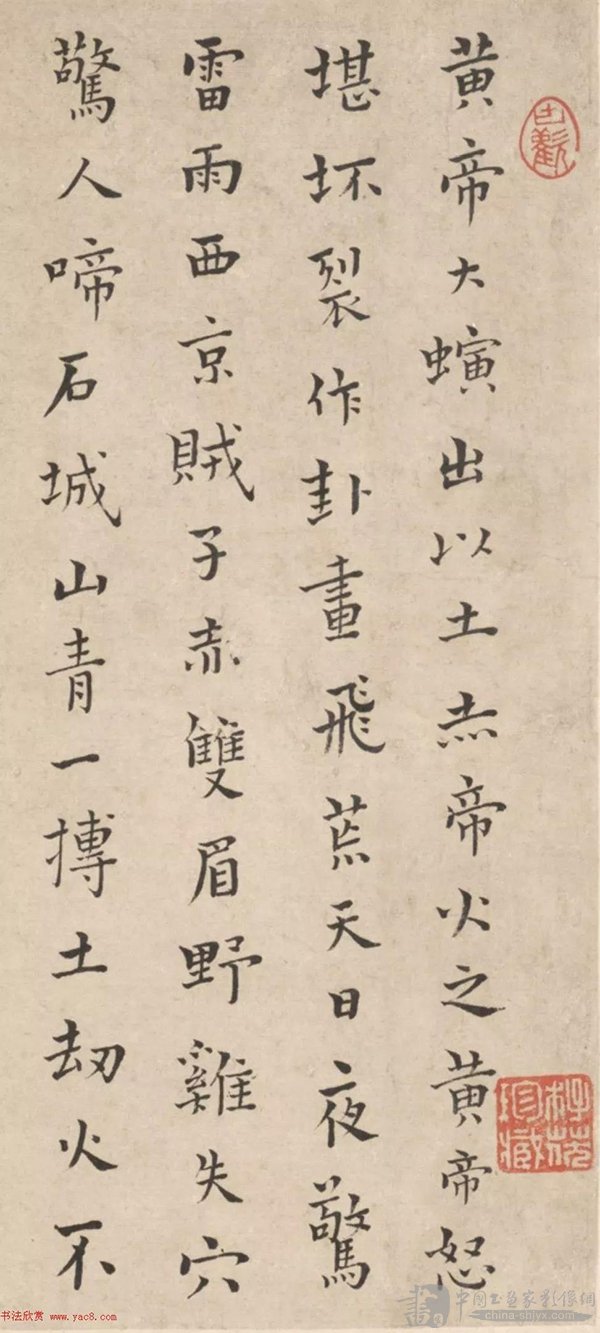 黄帝大螾出以土赤帝火之黄帝怒
堪坏裂作卦畫飛荒天日夜驚
雷雨西京賊子赤雙眉野雞失穴
驚人啼石城山青一摶土劫火不
书法欣赏 www.yac8.com
中国书画家影像网